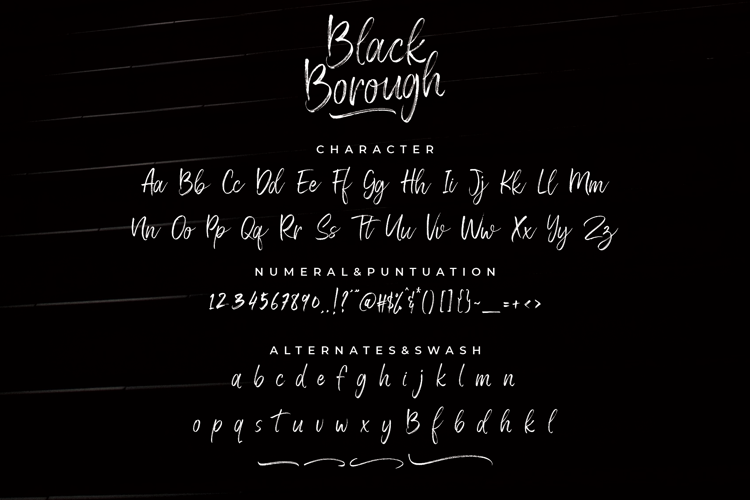 Black
Borough
CHARACTER
Aa Bb Cc Dd Ee Ff Gg Hh Ii Jj Kk Ll Mm
Nn Oo Pp Qq Rr Ss Tt Uu Vv Ww Xx Yy Zz
NUMERAL&PUNTUATION
1234567890..!?'"@#$%^&*()[]{}~_=+<>
ALTERNATES&SWASH
a b c d e f g h i j k l m n
o p q s t u v w x y B f b d h k l